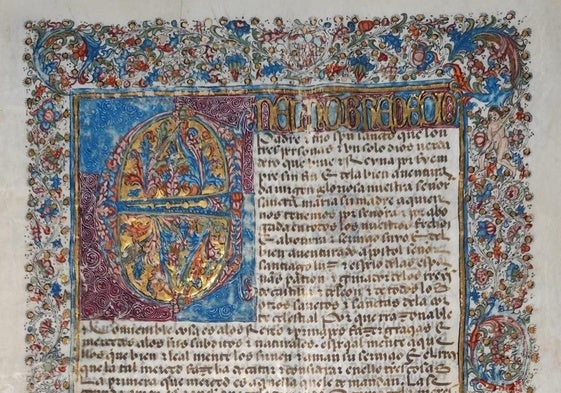 En el nonbre de dios
padre & fijo & spiritu que son
tres personas & vn solo dios verda
dero que biue & Reyna por sienp
pre sin fin & de la bien auentura
da virgen gloriosa nuestra señor
santa maria su madre a quien
nos tenemos por señora & por abo
gada en todos los nuestros fechos
& a honrra & seruiçio suyo & del
bien auenturado apostol señor
santiago luz & espejo de las españ
as patron & guiador de los Reye
de castilla & de leon & de todos los
santos & santas de la cor
te çelestial Por que razonable
& conuenible cosa es a los Reyes & prinçipes fazer graçias &
merçedes a los sus subditos & naturales espeçial mente aque
llos que bien & leal mente los siruen & aman su seruiçio & el Rey
que la tal merçed faze ha de catar en ello tres cosas
la primera que merçed es aquella que le demandan La se